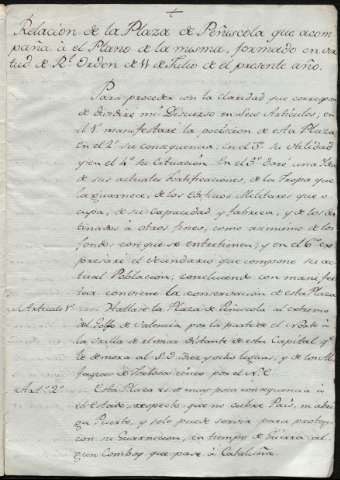 Relación de la Plaza de Peñiscola que acom
paña á el Plano de la misma, formado en vir
tud de Rl. Orden de 11 de Julio de el presente año.
Para proceder con la claridad que correspon
de dividiré mi Discurso en seis Articulos; en
el 1º manifestaré la posicion de esta Plaza
en el 2º su consequencia: en el 3º su utilidad
y en el 4º su situación: En el 5º daré una Idea
de sus actuales fortificaciones, de la Tropa que
la guarnece, de los Edificios Militares que o
cupa, de su Capacidad y fabrica, y de los des
tinados á otros fines, como asimismo de los
fondos con que se entretienen; y en el 6º ex
presaré el vecindario que compone su ac
tual Poblacion; concluiendo con manifes
tar conviene la conservación de esta Plaza
Articulo 1º Hallase la Plaza de Peñiscola al extremo
del Golfo de Valencia por la parte de el Norte á
la orilla del mar distante de esta Capital qe.
le demora al S.O. diez y ocho leguas, y de los Al
faques de Tortosa cinco por el N.E.
Art.º 2º Esta Plaza es de muy poca consequencia á
el Estado, respecto que no cubre Pais, ni abri
ga Puerto, y solo puede servir para proteger
con su Guarnicion, en tiempo de Guerra al
gun Comboy que pase á Cataluña.